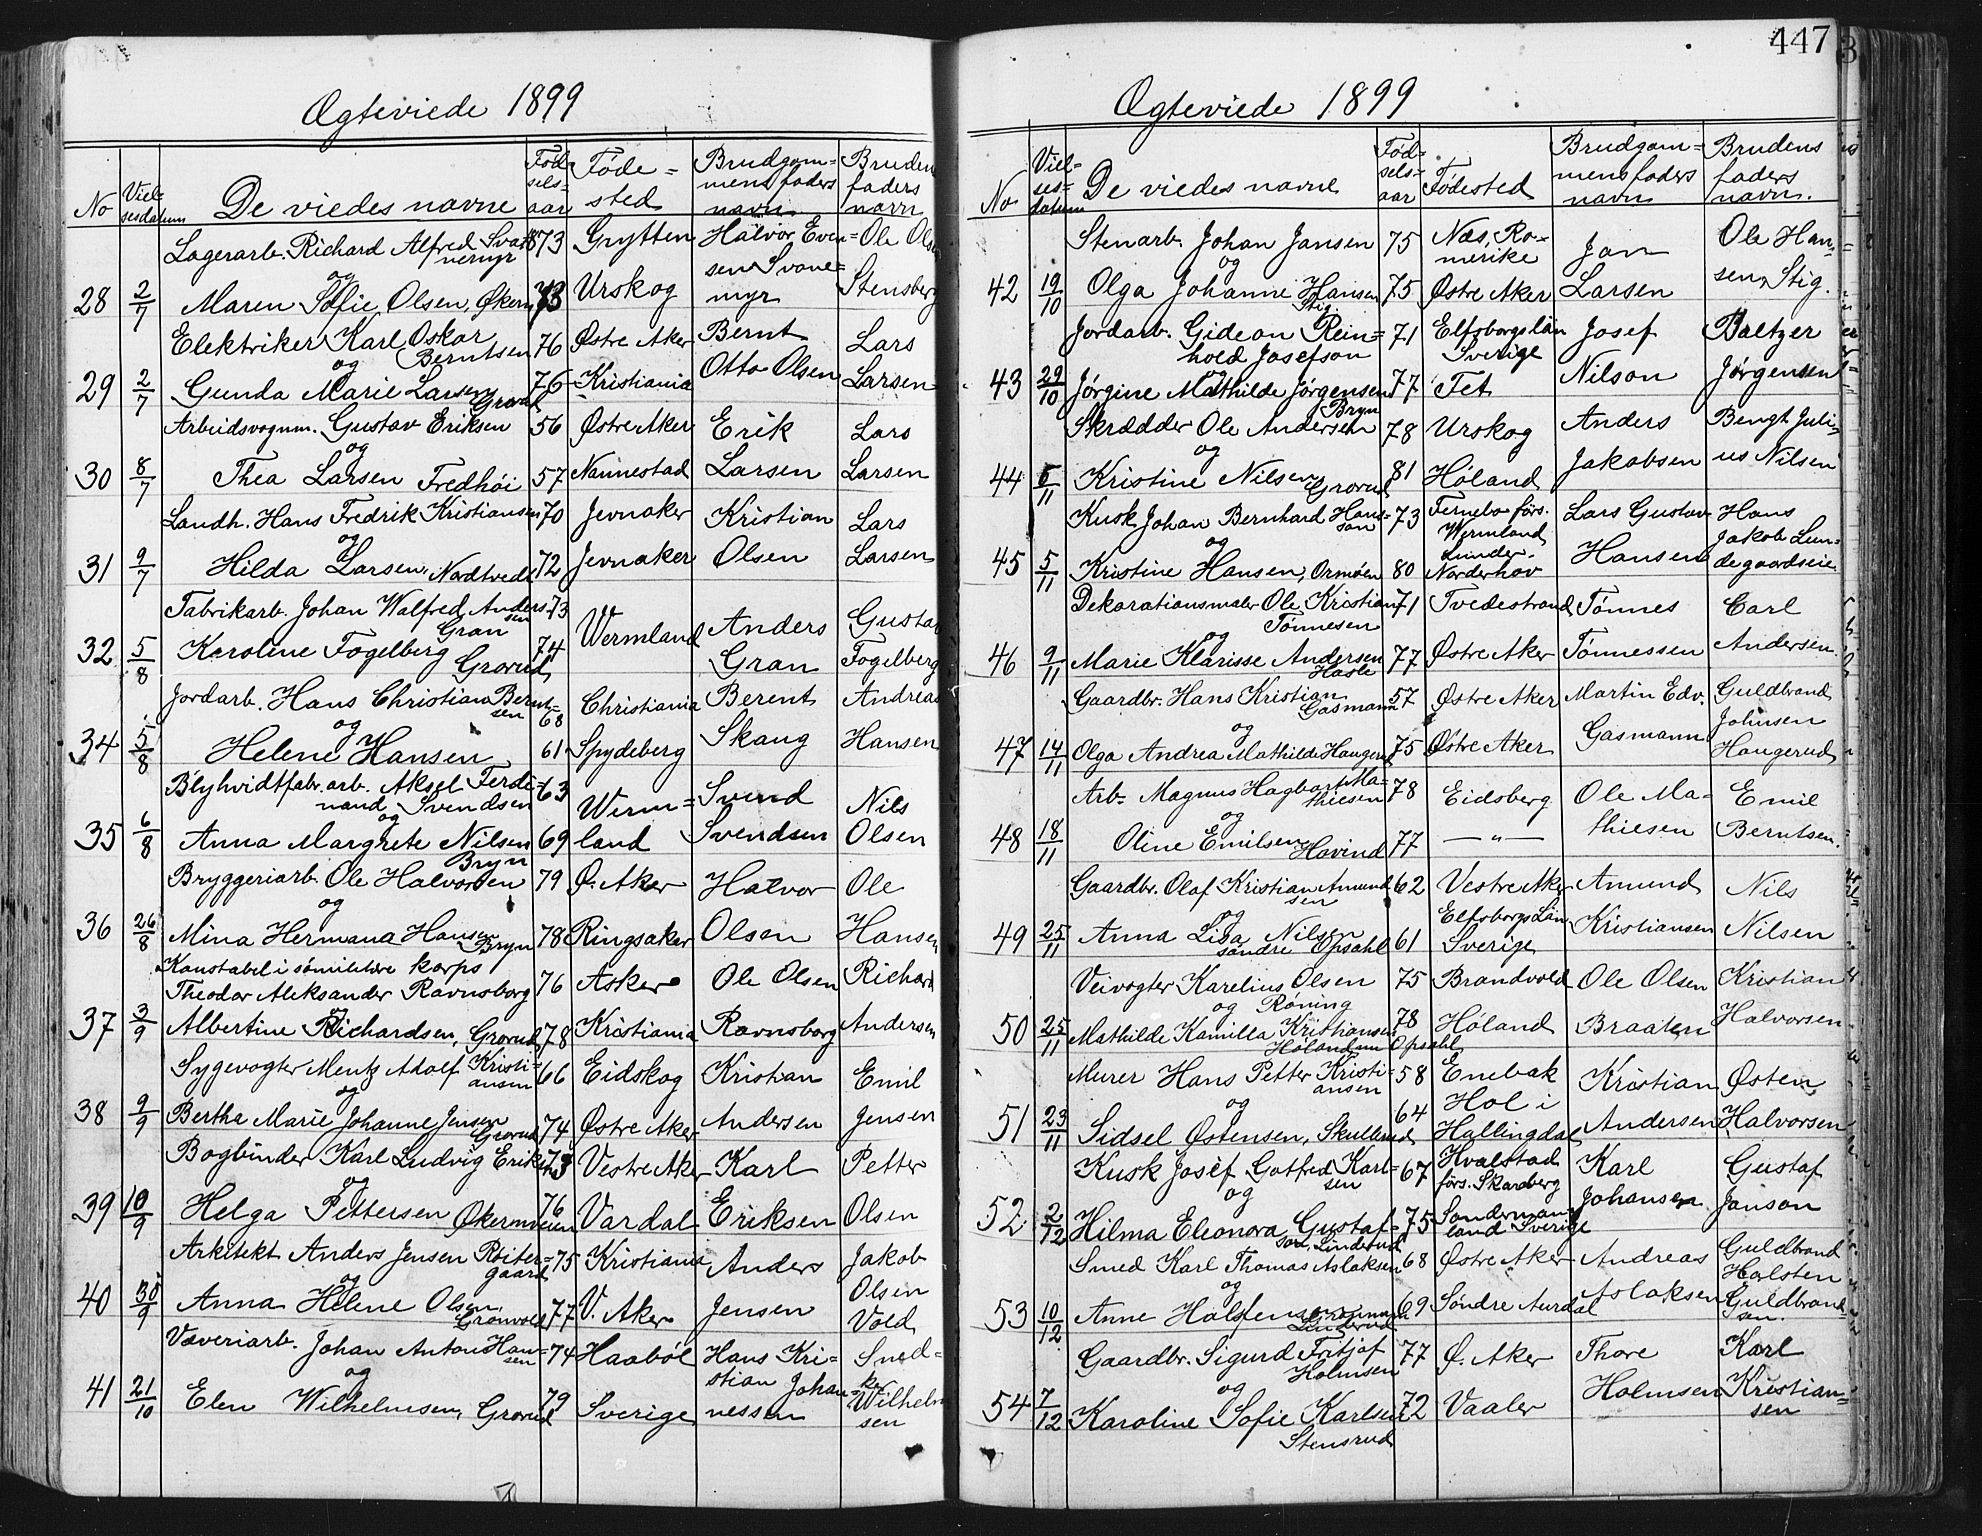 447
Ægteviede 1899
No Vielsesdatum De viedes navne Fødselsaar Fødested Brudgommens faders navn Bruden faders navn
Lagerarb. Richard Alfred Svanemyr 73 Grytten Halvor Even= Ole Olsen
og sen Svane=
28 2/7 Maren Sofie Olsen, Økern 73 Urskog myr Stensberg
Elektriker Karl Oskar Berntsen 76 Østre Aker Bernt Lars
og
29 2/7 Gunda Marie Larsen Grorud 76 Kristiania Otto Olsen Larsen
Arbeidsvognm. Gustav Eriksen 56 Østre Aker Erik Lars
og
30 8/7 Thea Larsen Fredhøi 57 Nannestad Larsen Larsen
Landh. Hans Fredrik Kristiansen 70 Jevnaker Kristian Lars
og
31 9/7 Hilda Larsen, Nordtvedt 72 Jevnaker Olsen Larsen
Fabrikarb. Johan Walfred Andersen Gran 73 Wermland Anders Gustav
32 5/8 Karoline Fogelberg Grorud 74 Gran Fogelberg
Jordarb. Hans Christian Berntsen 68 Christiania Berent Andreas
og
34 5/8 Helene Hansen 61 Spydeberg Skaug Hansen
Blyhvidtfabr.arb. Aksel Ferdinand Svendsen 63 Werm= Svend Nils
og
35 6/8 Anna Margrete Nilsen Bryn 69 land Svendsen Olsen
Bryggeriarb. Ole Halvorsen 79 Ø. Aker Halvor Ole
og
36 26/8 Mina Hermana Hansen Bryn 78 Ringsaker Olsen Hansen
Konstabel i sømilitære korps
Theodor Aleksander Ravnsborg 76 Asker Ole Olsen Richard
og
37 3/9 Albertine Richardsen, Grorud 78 Kristiania Ravnsborg Andersen
Sygevogter Mentz Adolf Kristiansen 66 Eidskog Kristian Emil
og
38 9/9 Bertha Marie Johanne Jensen Grorud 74 Østre Aker Andersen Jensen
Bogbinder Karl Ludvig Eriksen 73 Vestre Aker Karl Petter
og
39 10/9 Helga Pettersen Økernveien 76 Vardal Eriksen Olsen
Arkitekt Anders Jensen Røitergaard 75 Kristiania Anders Jakob
og
40 30/9 Anna Helene Olsen Grønvold 77 V. Aker Jensen Olsen Vold
Væveriarb. Johan Anton Hansen 74 Haabøl Hans Kri= Sned=
og stian Johan= ker
41 21/10 Elen Wilhelmsen, Grorud 79 Sverige nessen Wilhelmsen
Ægteviede 1899
No Vielsesdatum De viedes navne Fødselsaar Fødested Brudgommens faders navn Brudens faders navn.
Stenarb. Johan Jansen 75 Næs, Romerike Jan Ole Han=
og
42 19/10 Olga Johanne Hansen Stig 75 Østre Aker Larsen sen, Stig.
Jordarb. Gideon Reinhold Josefson 71 Elfsborgs län Sverige Josef Baltzer
og
43 29/10 Jørgine Mathilde Jørgensen Bryn 77 Fet Nilson Jørgensen
Skrædder Ole Andersen 78 Urskog Anders Bengt Juli=
og
44 5/11 Kristine Nilsen Grorud 81 Høland Jakobsen us Nilsen
Kusk Johan Bernhard Hansson 73 Fernebo förs. Wermland Lars Gustav Hans
og Lunder. Jakob Lun=
45 5/11 Kristine Hansen, Ormøen 80 Norderhov Hansen degaardseie
Dekorationsmaler Ole Kristian Tønnesen 71 Tvedestrand Tønnes Carl
og
46 9/11 Marie Klarisse Andersen Hasle 77 Østre Aker Tønnessen Andersen
Gaardbr. Hans Kristian Gasmann 57 Østre Aker Martin Edv. Guldbrand
og Johnsen
47 14/11 Olga Andrea Mathilde Haugerud 75 Østre Aker Gasmann Haugerud
Arb. Magnus Hagbart Mathiesen 78 Eidsberg Ole Ma= Emil
og
48 18/11 Oline Emilsen Hovind 77 — „ — thiesen Berntsen.
Gaardbr. Olaf Kristian Amundsen 62 Vestre Aker Amund Nils
og
49 25/11 Anna Lisa Nilsen søndre Opsahl 61 Elfsborgs Län Sverige Kristiansen Nilsen
Veivogter Karelius Olsen Røning 75 Brandvold Ole Olsen Kristian
og
50 25/11 Mathilde Kamilla Kristiansen Høland nu Opsahl 78 Høland Braaten Halvorsen
Murer Hans Petter Kristiansen 58 Enebak Kristian Østen
og
51 23/11 Sidsel Østensen, Skullerud 64 Hol i Hallingdal Andersen Halvorsen
Kusk Josef Gotfred Karlsen 67 Hvalstad förs. Skaraberg Karl Gustaf
og
52 2/12 Hilma Eleonora Gustafson, Linderud 75 Sondermanland Sverige Johansen Janson
Smed Karl Thomas Aslaksen 68 Østre Aker Andreas Guldbrand
og Halsten
53 10/12 Anne Halstensen Linderud 69 Søndre Aurdal Aslaksen Guldbrandsen.
Gaardbr. Sigurd Fritjof Holmsen 77 Ø. Aker Thore Karl
og
54 7/12 Karoline Sofie Karlsen Stensrud 72 Vaaler Holmsen Kristiansen